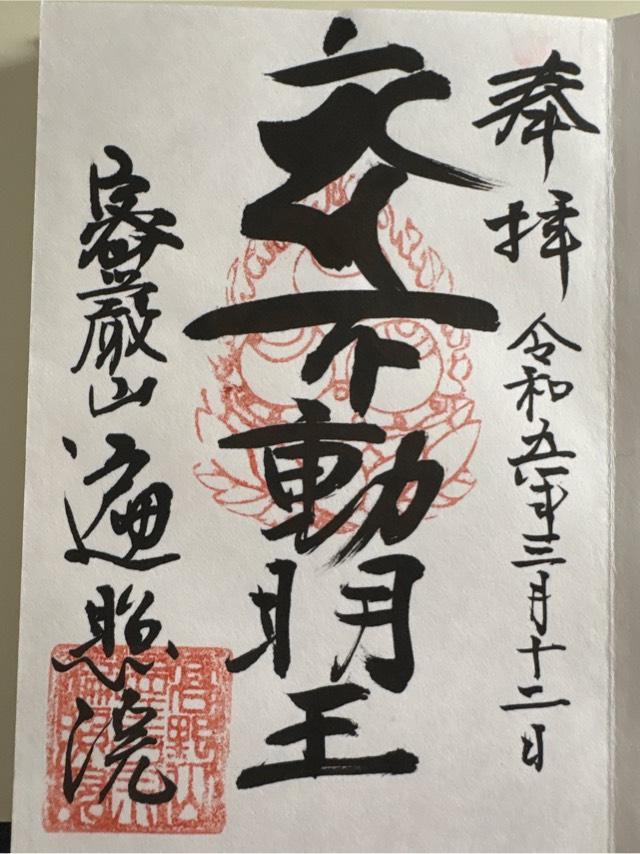 奉拝
令和五年三月十二日
不動明王
密厳山
遍照院
高野山